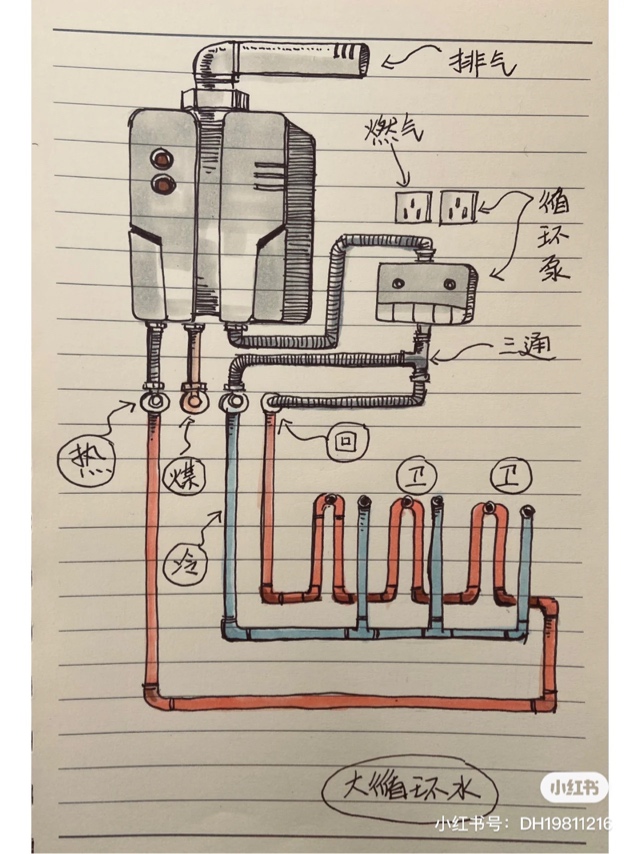 排气
燃气
循
环
泵
三通
热
煤
回
卫
卫
冷
大循环水
小红书
小红书号：DH19811216